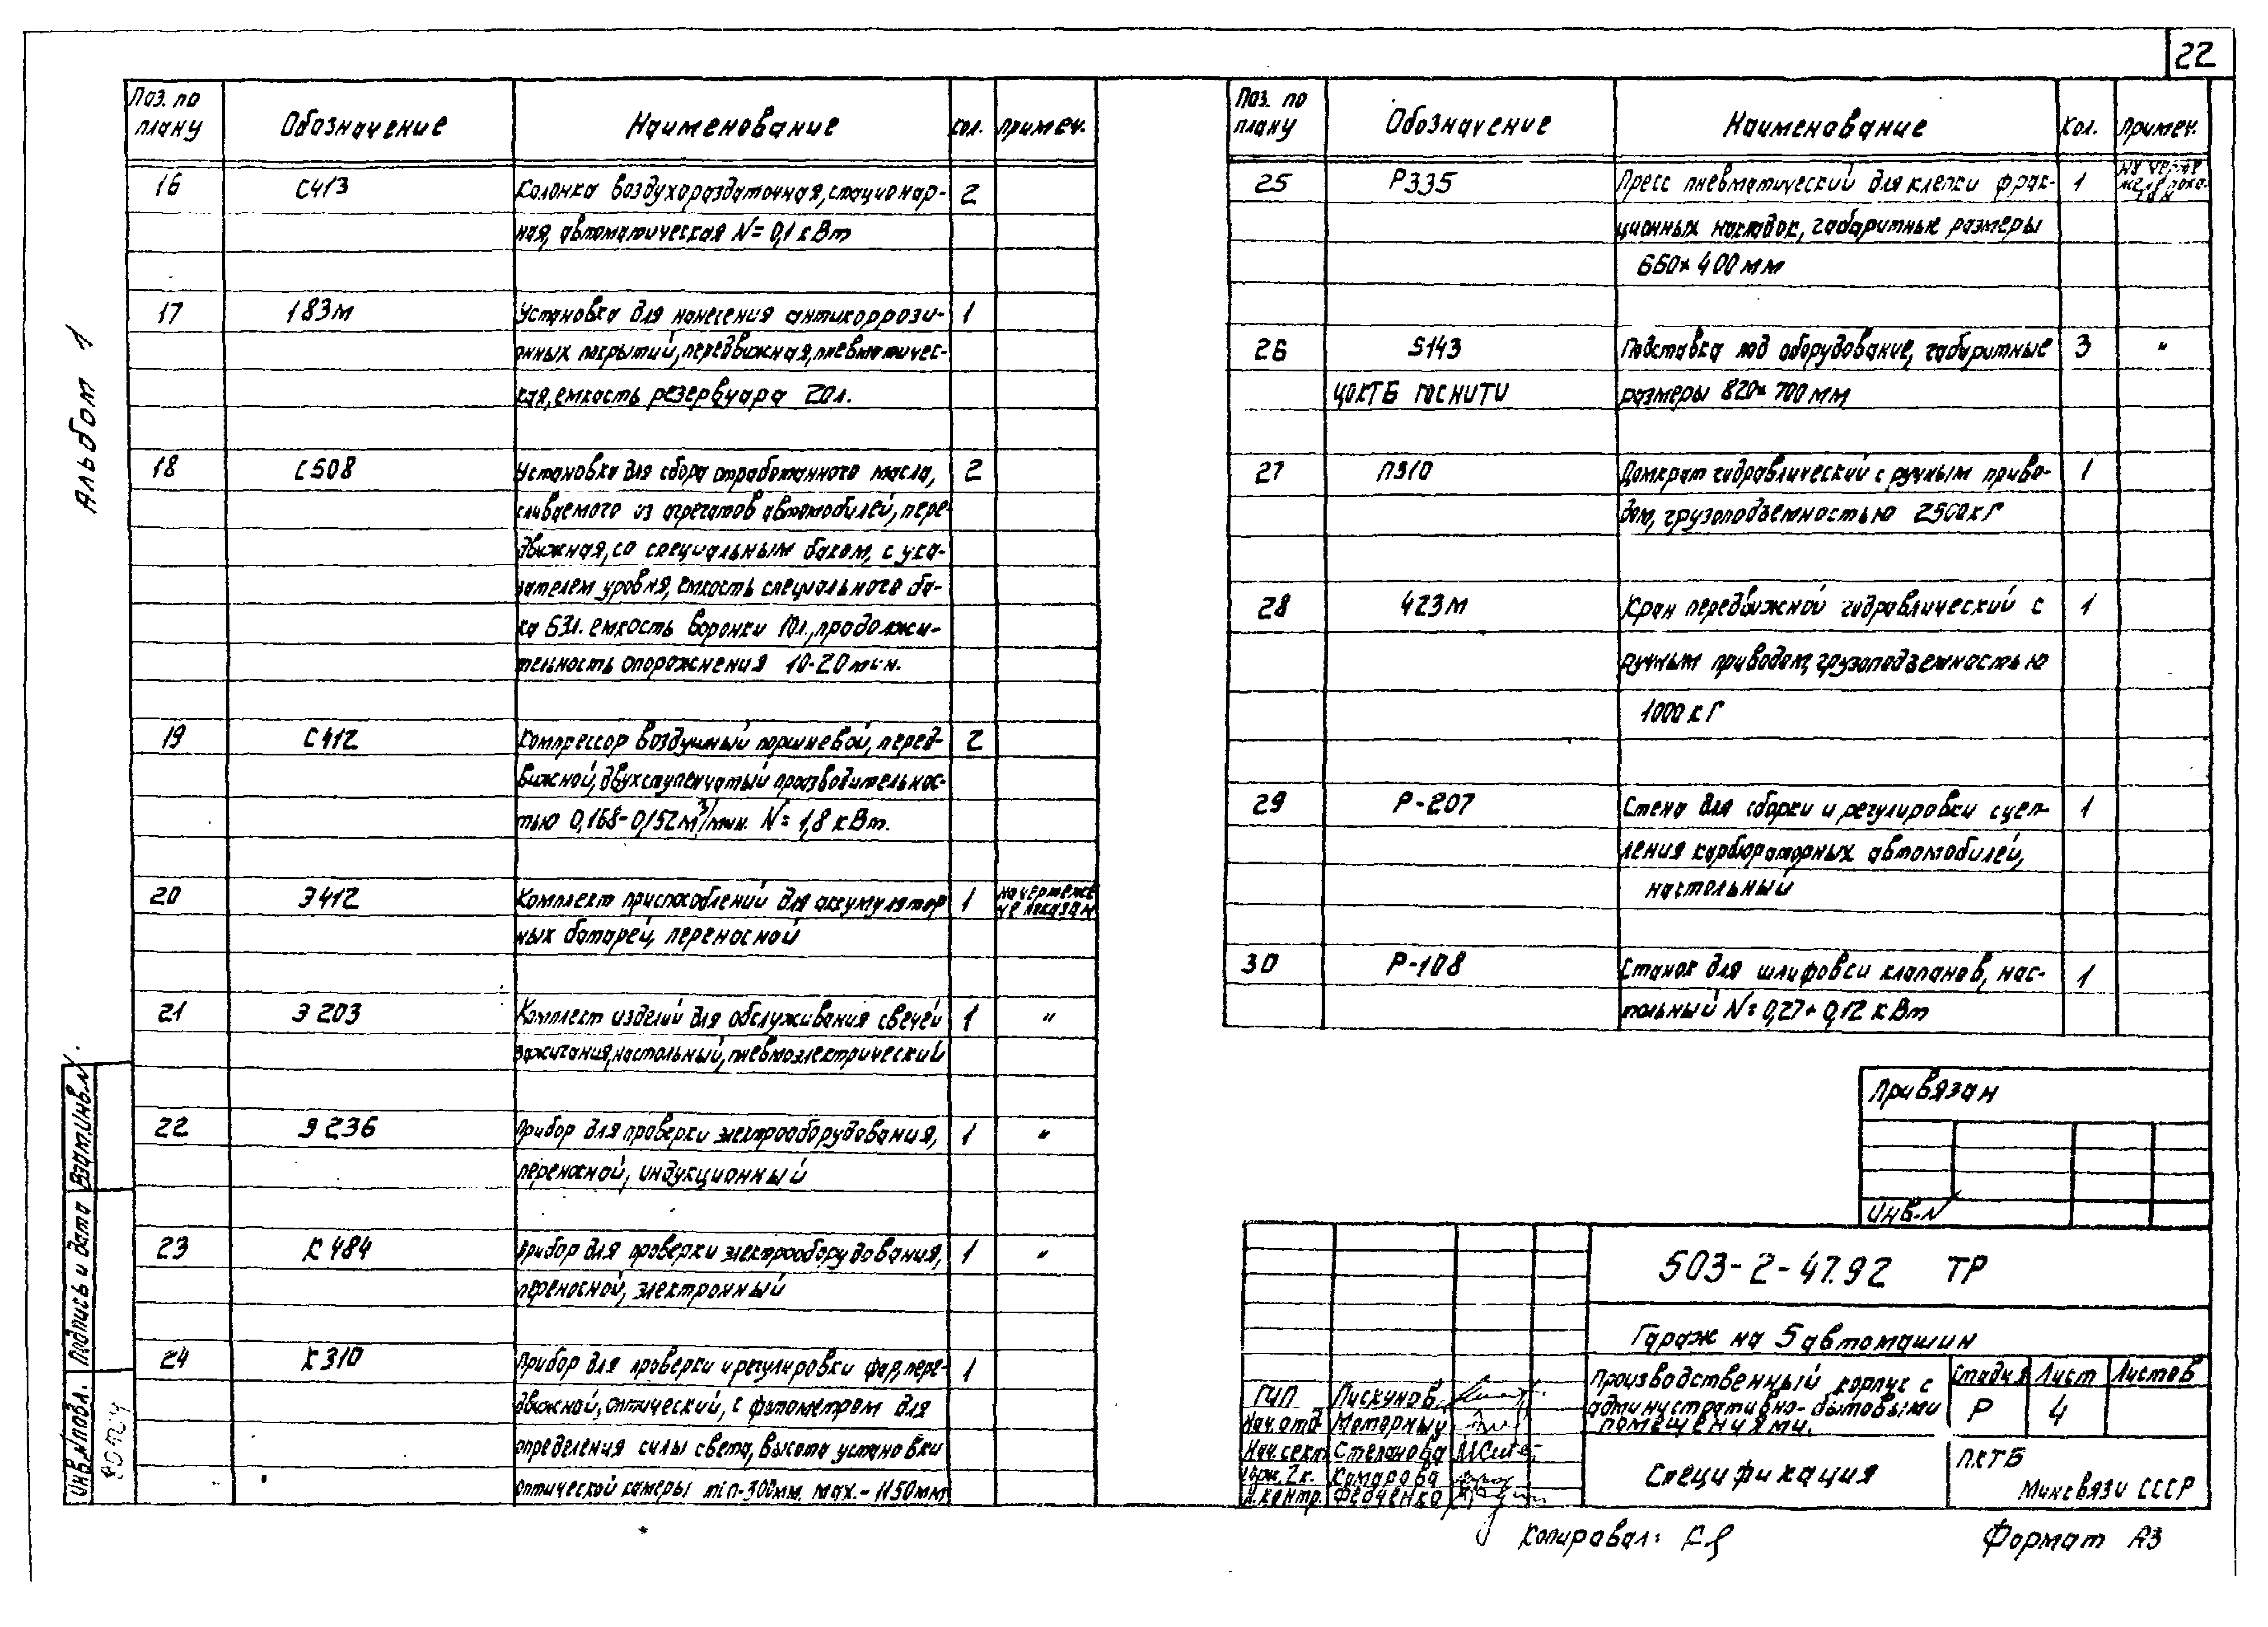 22
Альбом 1
Поз. по плану Обозначение Наименование Кол. Примеч.
16 С413 Колонка воздухораздаточная, стационар- 2
ная, автоматическая N= 0,1 кВт
17 183м Установка для нанесения антикоррози- 1
онных покрытий, передвижная, пневматичес-
кая, емкость резервуара 20л.
18 С508 Установка для сбора отработанного масла, 2
сливаемого из агрегатов автомобилей, пере-
движная, со специальным баком, с ука-
зателем уровня, емкость специального ба-
ка 63л. емкость воронки 10л., продолжи-
тельность опорожнения 10-20 мин.
19 С412 Компрессор воздушный поршневой, перед- 2
вижной, двухступенчатый производительнос-
тью 0,168-0,152 м³/мин. N= 1,8 кВт.
20 Э412 Комплект приспособлений для аккумулятор 1 на чертеже
не показан
ных батарей, переносной
21 Э 203 Комплект изделий для обслуживания свечей 1 "
зажигания, настольный, пневмоэлектрический
22 Э 236 Прибор для проверки электрооборудования, 1 "
переносной, индукционный
23 К 484 Прибор для проверки электрооборудования, 1 "
переносной, электронный
24 К 310 Прибор для проверки и регулировки фар, пере- 1
движной, оптический, с фотометром для
определения силы света, высота установки
оптической камеры min-300мм. max.- 1150мм
Поз. по плану Обозначение Наименование Кол. Примеч.
25 Р335 Пресс пневматический для клепки фрак- 1
ционных накладок, габаритные размеры
660× 400 мм
26 S143 Подставка под оборудование, габаритные 3 "
ЦОКТБ ГОСНИТИ размеры 820× 700 мм
27 П310 Домкрат гидравлический с ручным приво- 1
дом, грузоподъемностью 2500 кГ
28 423м Кран передвижной гидравлический с 1
ручным приводом, грузоподъемностью
1000 кГ
29 Р-207 Стенд для сборки и регулировки сцеп- 1
ления карбюраторных автомобилей,
настольный
30 Р-108 Станок для шлифовки клапанов, нас- 1
тольный N= 0,27+ 0,12 кВт
Привязан
Инв. N
503-2-47.92 ТР
Гараж на 5 автомашин
Производственный корпус с
административно-бытовыми
помещениями.
Стадия Лист Листов
Р 4
Спецификация
ПКТБ
Минсвязи СССР
ГИП Пискунов
Нач. отд Моторный
Нач. сект Степанова
Инж. 2 к. Комарова
Н. контр. Федченко
Взам. инв. N
Подпись и дата
Инв. N подл.
Копировал:
Формат А3